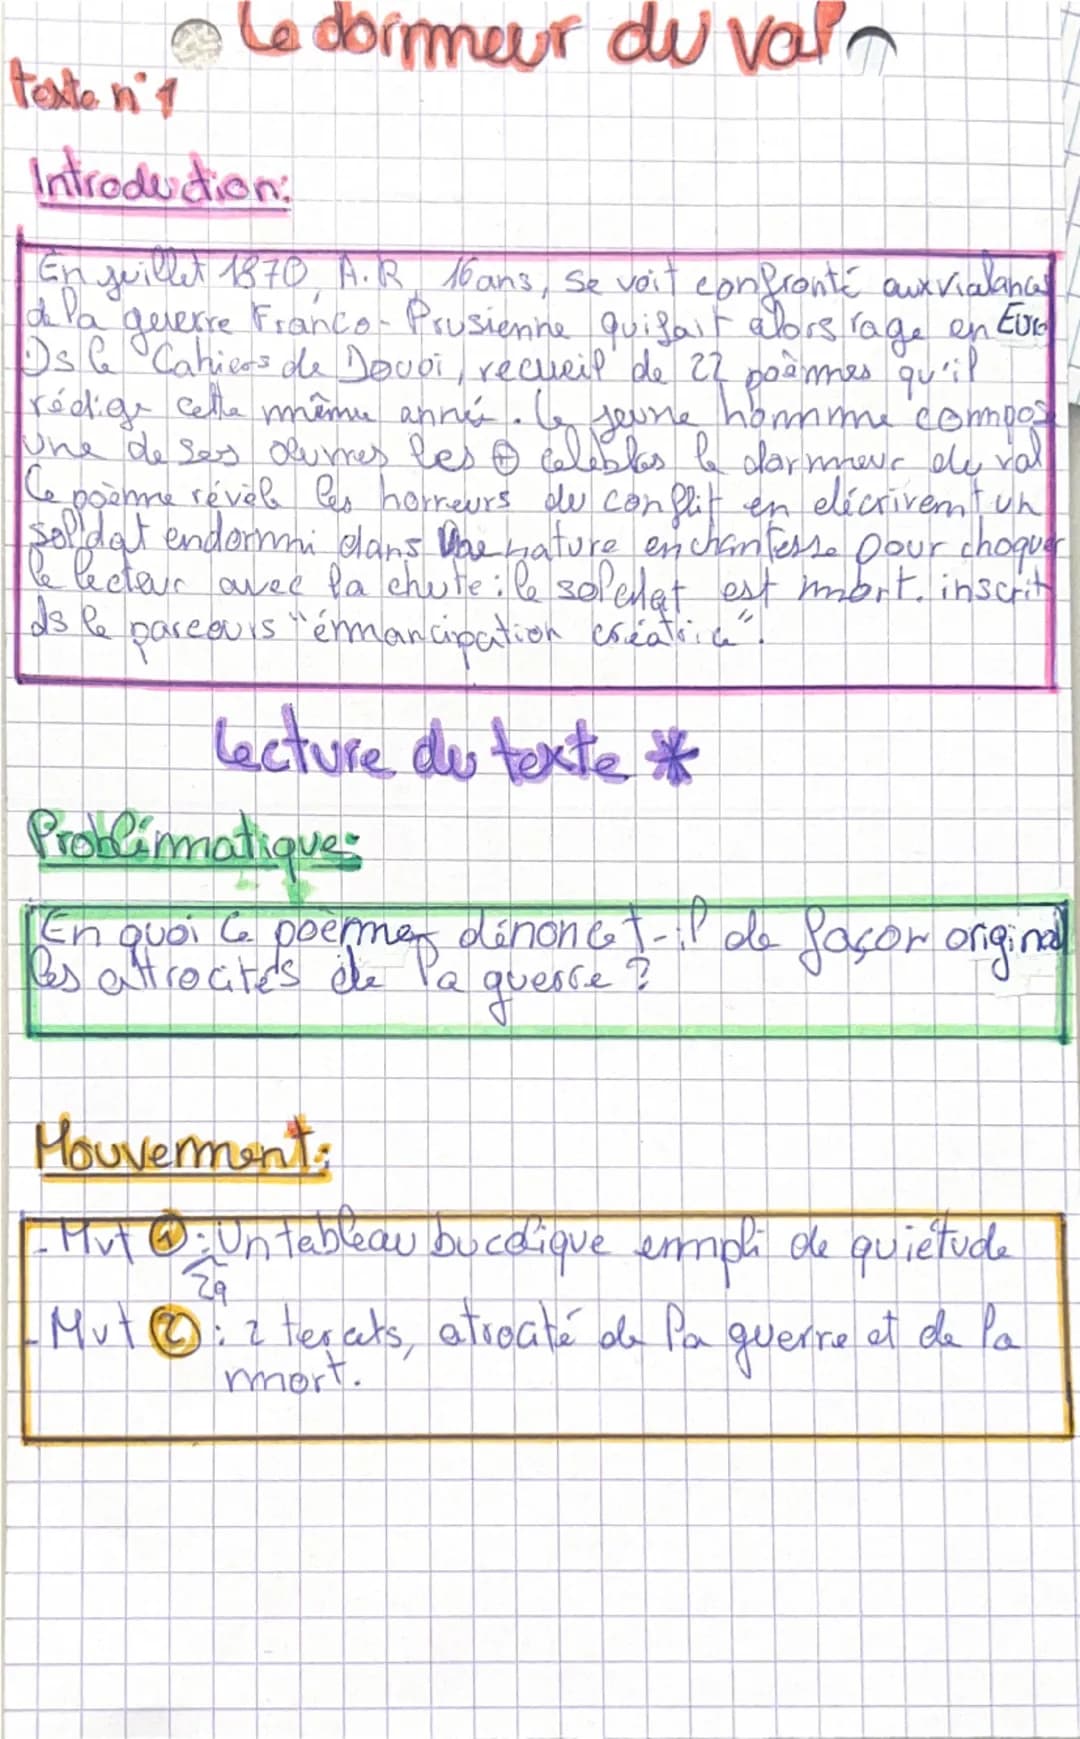 Le dormeur du val
texte n°1
Introduction:
En juillet 1870, A.R, 16 ans, se voit confronté aux violances
de la guerre Franco-Prusienne qui fait alors rage en Euro
Ds le Cahiers de Douai, recueil de 22 poèmes qu'il
rédige cette même année. le jeune homme compos
une de ses œuvres les ⊕ celèbles le dormeur du val
Ce poème révèle les horreurs du conflit en décrivent un
soldat endormi dans une nature enchantesse pour choquer
le lecteur avec la chute : le soldat est mort. inscrit
ds le parcours "émancipation créatrice".
Lecture du texte *
Problématique:
En quoi ce poème dénoncet-il de façon original
les attrocités de la guerre ?
Mouvement:
- Mvt ① : Un tableau bucolique empli de quiétude
2q
- Mvt ② : 2 tercets, atrocité de la guerre et de la
mort.